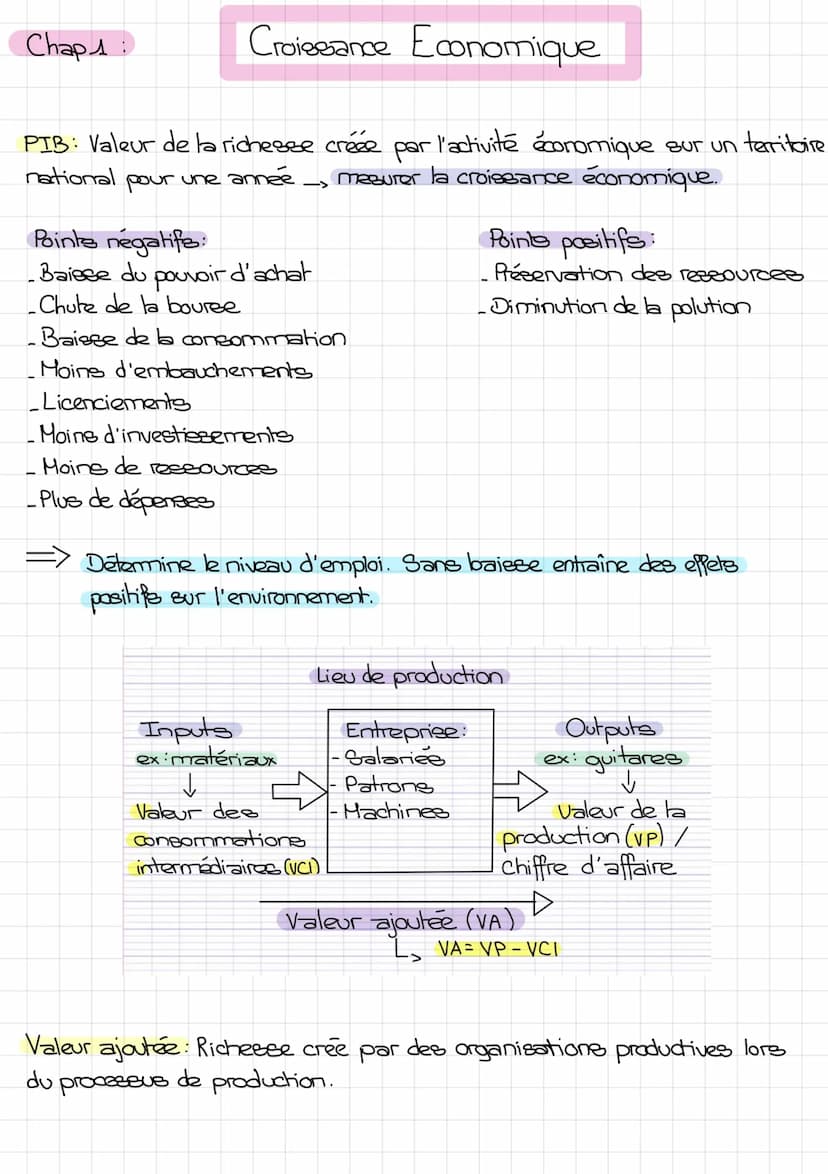 Chap 1 :
Croissance Economique
PIB: Valeur de la richesse créée par l'activité économique sur un territoire
national pour une année → mesurer la croissance économique.
Points négatifs:
- Baisse du pouvoir d'achat
- Chute de la bourse
- Baisse de la consommation
- Moins d'embauchements
- Licenciements
- Moins d'investissements
- Moins de ressources
- Plus de dépenses
Points positifs:
- Préservation des ressources
- Diminution de la polution
⇒ Détermine le niveau d'emploi. Sans baisse entraîne des effets
positifs sur l'environnement.
Lieu de production
Inputs
ex: matériaux
↓
Valeur des
consommations
intermédiaires (VCI)
Entreprise:
- Salariés
- Patrons
- Machines
Outputs
ex: guitares
↓
Valeur de la
production (VP) /
Chiffre d'affaire
Valeur ajoutée (VA)
↳ VA = VP - VCI
Valeur ajoutée: Richesse crée par des organisations productives lors
du processus de production.